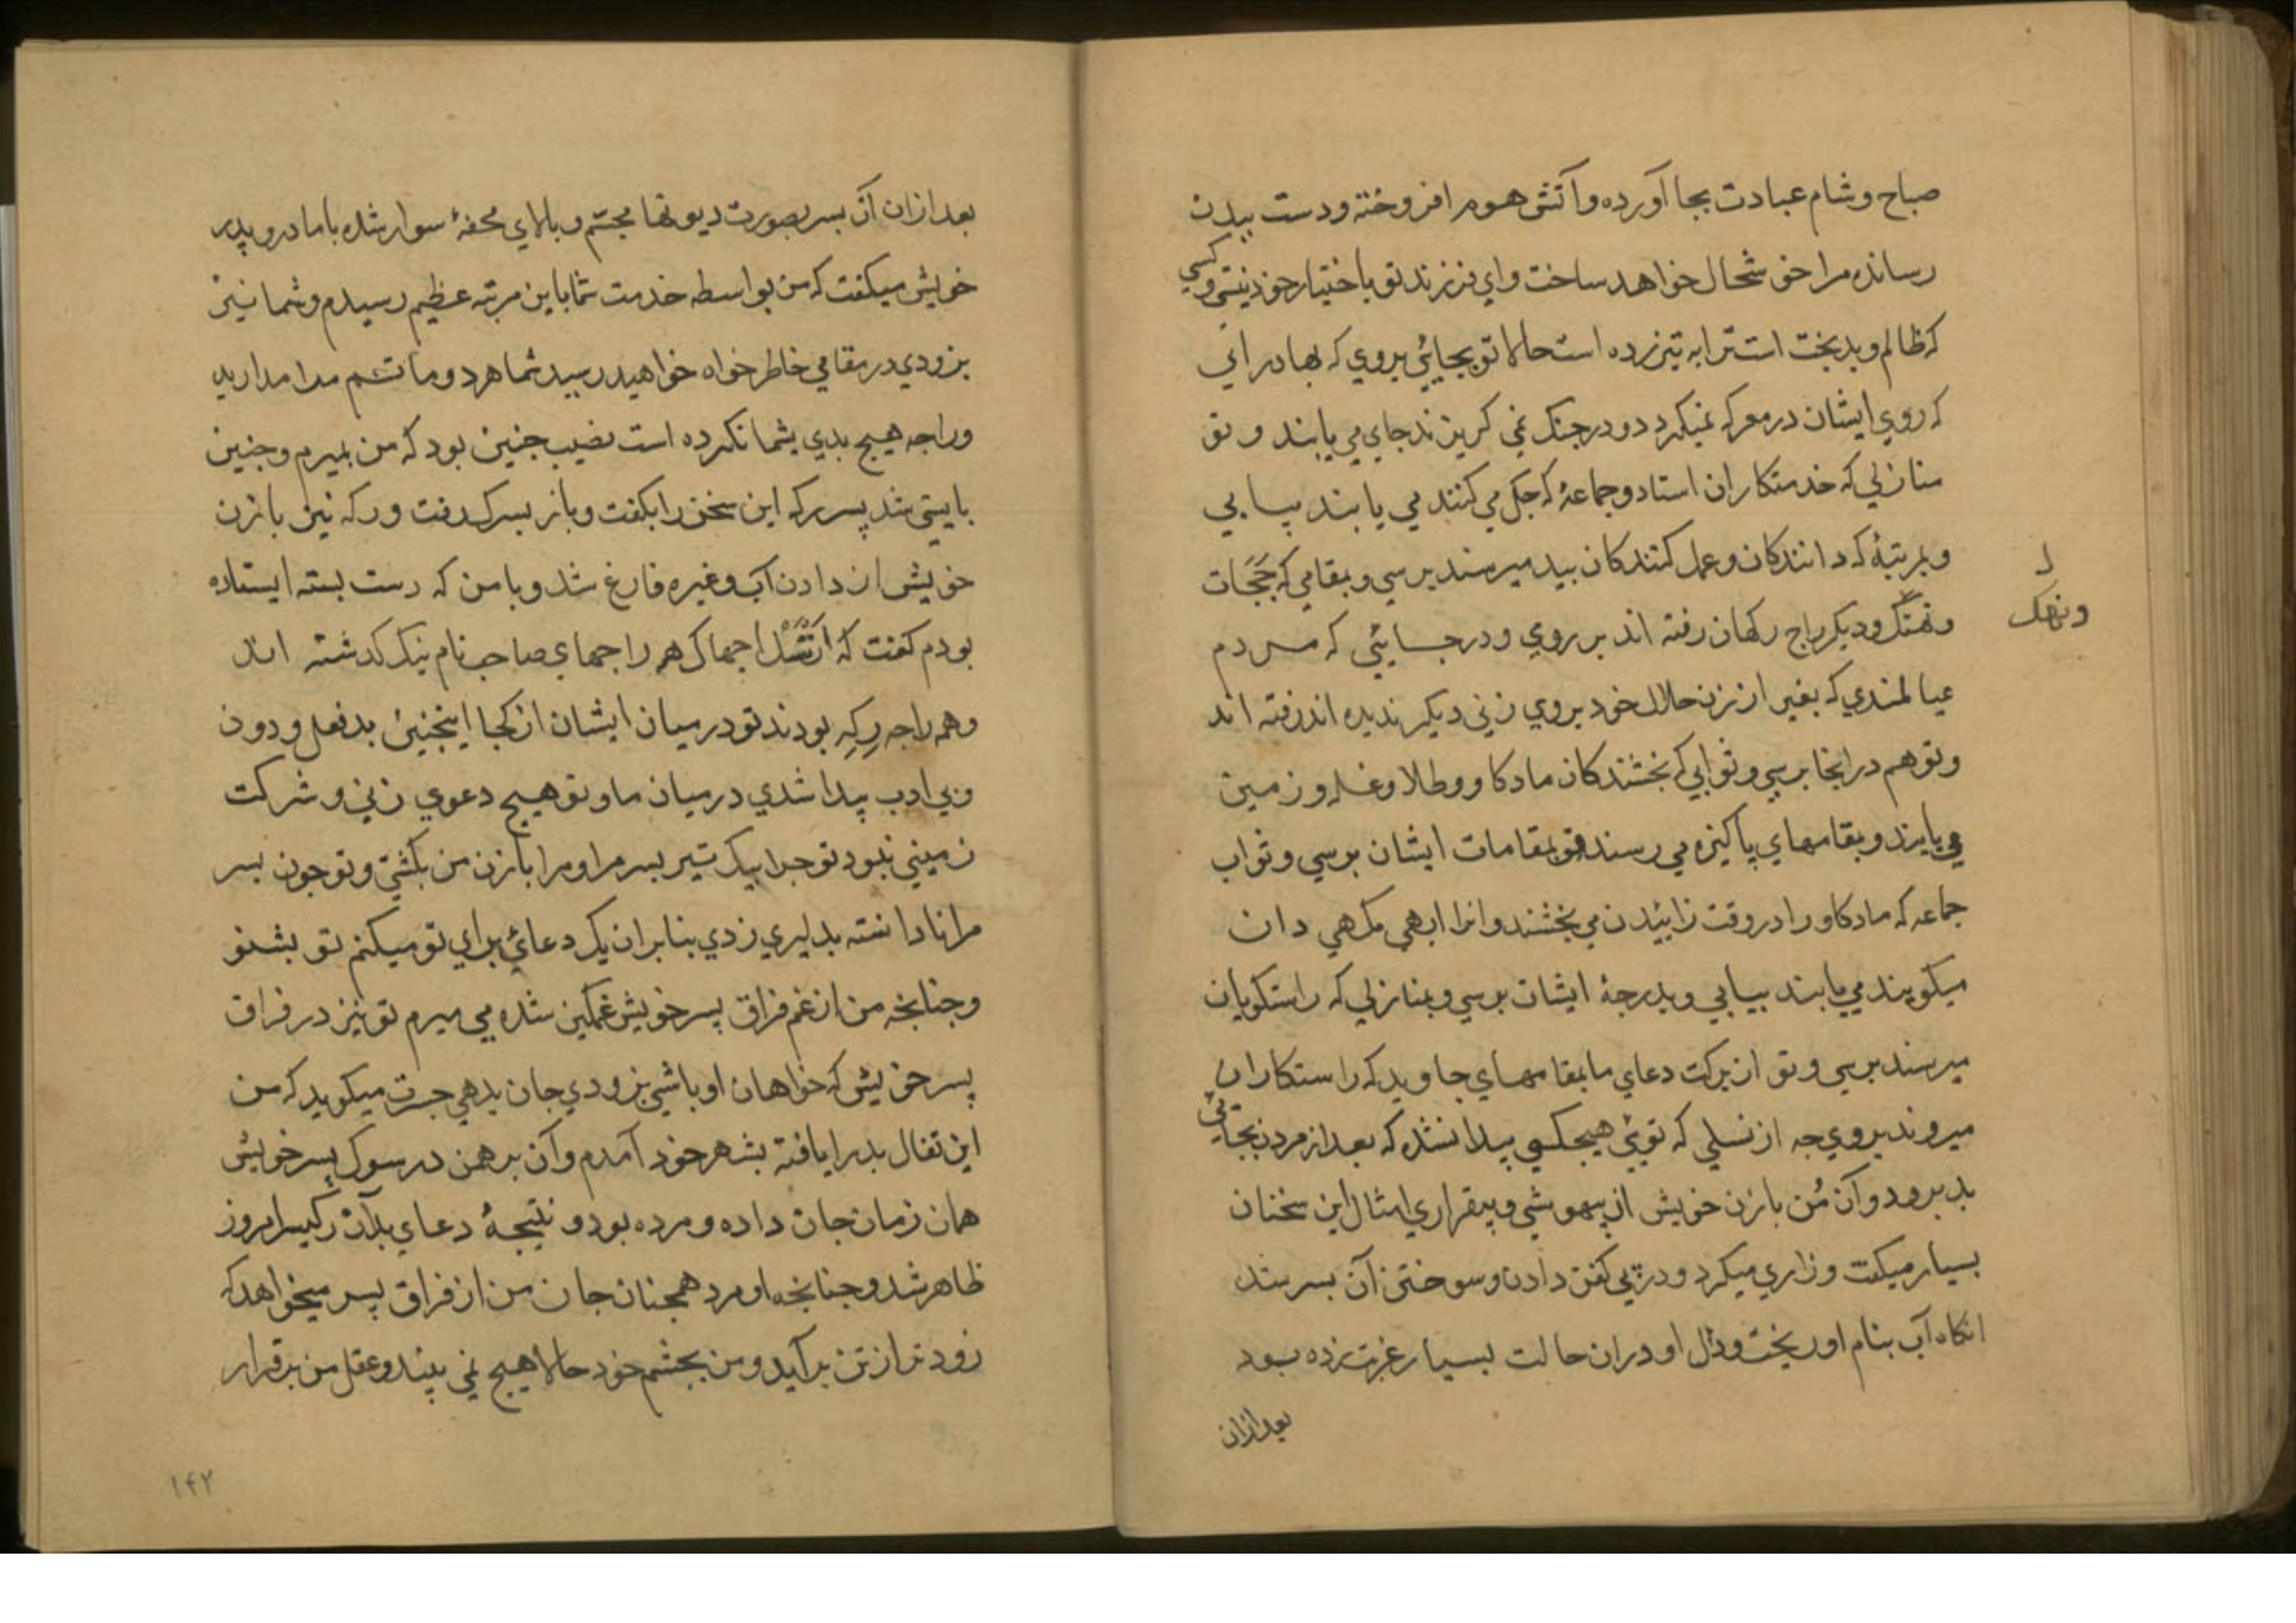 صباح و شام عبادت بجا آورده و آتش هوم افروخته و دست ببدن
رسانده مرا خوشحال خواهد ساخت و اي فرزند تو باختيار خود نيستي و كسي
كه ظالم و بدبخت است ترا به تير زده است حالا تو بجايي بروي كه بهادراني
كه روي ايشان در معركه نميكردد و در جنك نمي كريزند جاي مي يابند و تو
منازلي كه خدمتكاران استاد و جماعهٔ كه جك مي كنند مي يابند بيابي
و بمرتبهٔ كه دانندكان و عمل كنندكان بيد ميرسند برسي و بمقامي كه ججات
و نهنك و ديكر راج ركهان رفته اند بروي و در جايئي كه مردم
ل
ونهك
عيالمندي كه بغير از زن حلال خود بروي زني ديكر نديده اند رفته اند
و تو هم در انجا برسي و ثوابي كه بخشندكان مادكاو و طلا و غله و زمين
مي يابند و بمقامهاي پاكيزه مي رسند تو بمقامات ايشان برسي و ثواب
جماعه كه مادكاو را در وقت زائيدن مي بخشند و انرا ابهي مكهي دان
ميكويند مي يابند بيابي و بدرجهٔ ايشان برسي و بمنازلي كه راستكويان
ميرسند برسي و تو از بركت دعاي ما بمقامهاي جاويد كه راستكاران
ميروند بروي چه از نسلي كه توئي هيجكسي پيدا نشده كه بعد از مردن بجائي
بد برود و آن مُن با زن خويش از بيهوشي و بيقراري امثال اين سخنان
بسيار ميكفت و زاري ميكرد و در پي كفن دادن و سوختن آن بسر شد
انكاه آب بنام او ريخت و دل او دران حالت بسيار غربت زده بود
بعد ازان
بعد ازان آن بسر بصورت ديوتها مجسم و بالاي محفهٔ سوار شده با مادر و پدر
خويش ميكفت كه من بواسطه خدمت شما باين مرتبه عظيم رسيدم و شما نيز
بزودي در مقامي خاطر خواه خواهيد رسيد شما هر دو ماتم مدا مداريد
و راجه هيچ بدي بشما نكرده است نصيب جنين بود كه من بميرم و جنين
بايستي شد پسر ركه اين سخن را بكفت و باز بسرك رفت و ركه نيز با زن
خويش از دادن آب و غيره فارغ شد و با من كه دست بسته ايستاده
بودم كفت كه از نسل اجهاك همه راجهاي صاحب نام نيك كذشته اند
و همه راجه رِكِه بودند تو در ميان ايشان از كجا اينجنين بدفعل و دون
و بي ادب پيدا شدي در ميان ما و تو هيچ دعوي زني و شركت
زميني نبود تو جرا بيك تير بسر مرا و مرا با زن من بكشتي و تو جون بسر
مرا نادانسته بدليري زدي بنابران يك دعائي براي تو ميكنم تو بشنو
و جنانجه من از غم فراق پسر خويش غمكين شده مي ميرم تو نيز در فراق
پسر خويش كه خواهان او باشي بزودي جان بدهي جسرت ميكويد كه من
اين تفال بد را يافته بشهر خود آمدم و آن برهمن در سوك پسر خويش
همان زمان جان داده و مرده بود و نتيجهٔ دعاي بد آن ركيسر امروز
ظاهر شد و جنانجه او مرد همجنان جان من از فراق پسر ميخواهد كه
زودتر از تن برآيد و من بجشم خود حالا هيچ نمي بيند و عقل من برقرار
۱۴۲